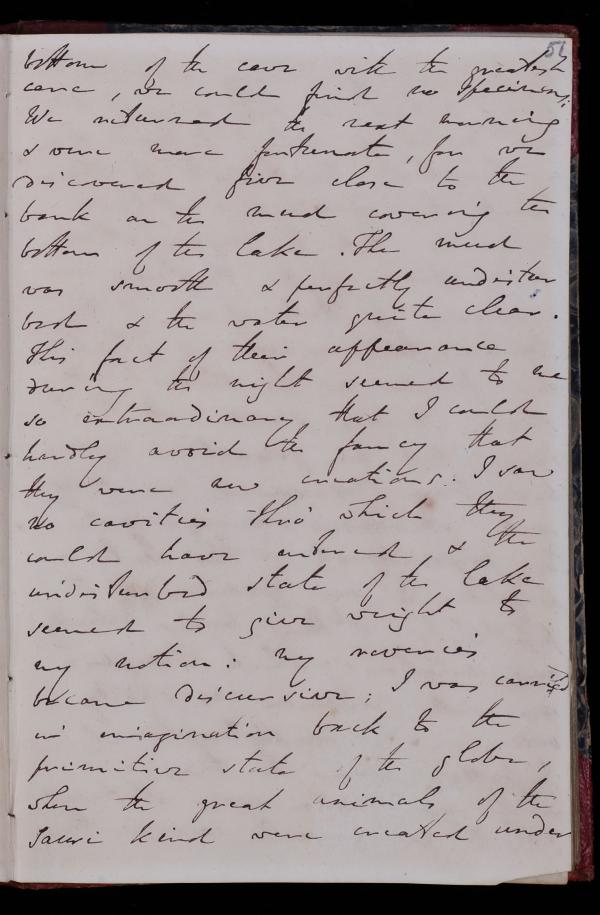 51
bottom of the cave with the greatest
care, we could find no specimens;
We returned the next morning
& were more fortunate, for we
discovered five close to the
bank on the mud covering the
bottom of the lake. The mud
was smooth & perfectly undistur
bed & the water quite clear.
This fact of their appearance
during the night seemed to me
so extraordinary that I could
hardly avoid the fancy that
they were new creations. I saw
no cavities thro' which they
could have entered & the
undisturbed state of the lake
seemed to give weight to
my notion: my reveries
became discursive; I was carried
in imagination back to the
primitive state of the globe,
when the great animals of the
Sauri kind were created under